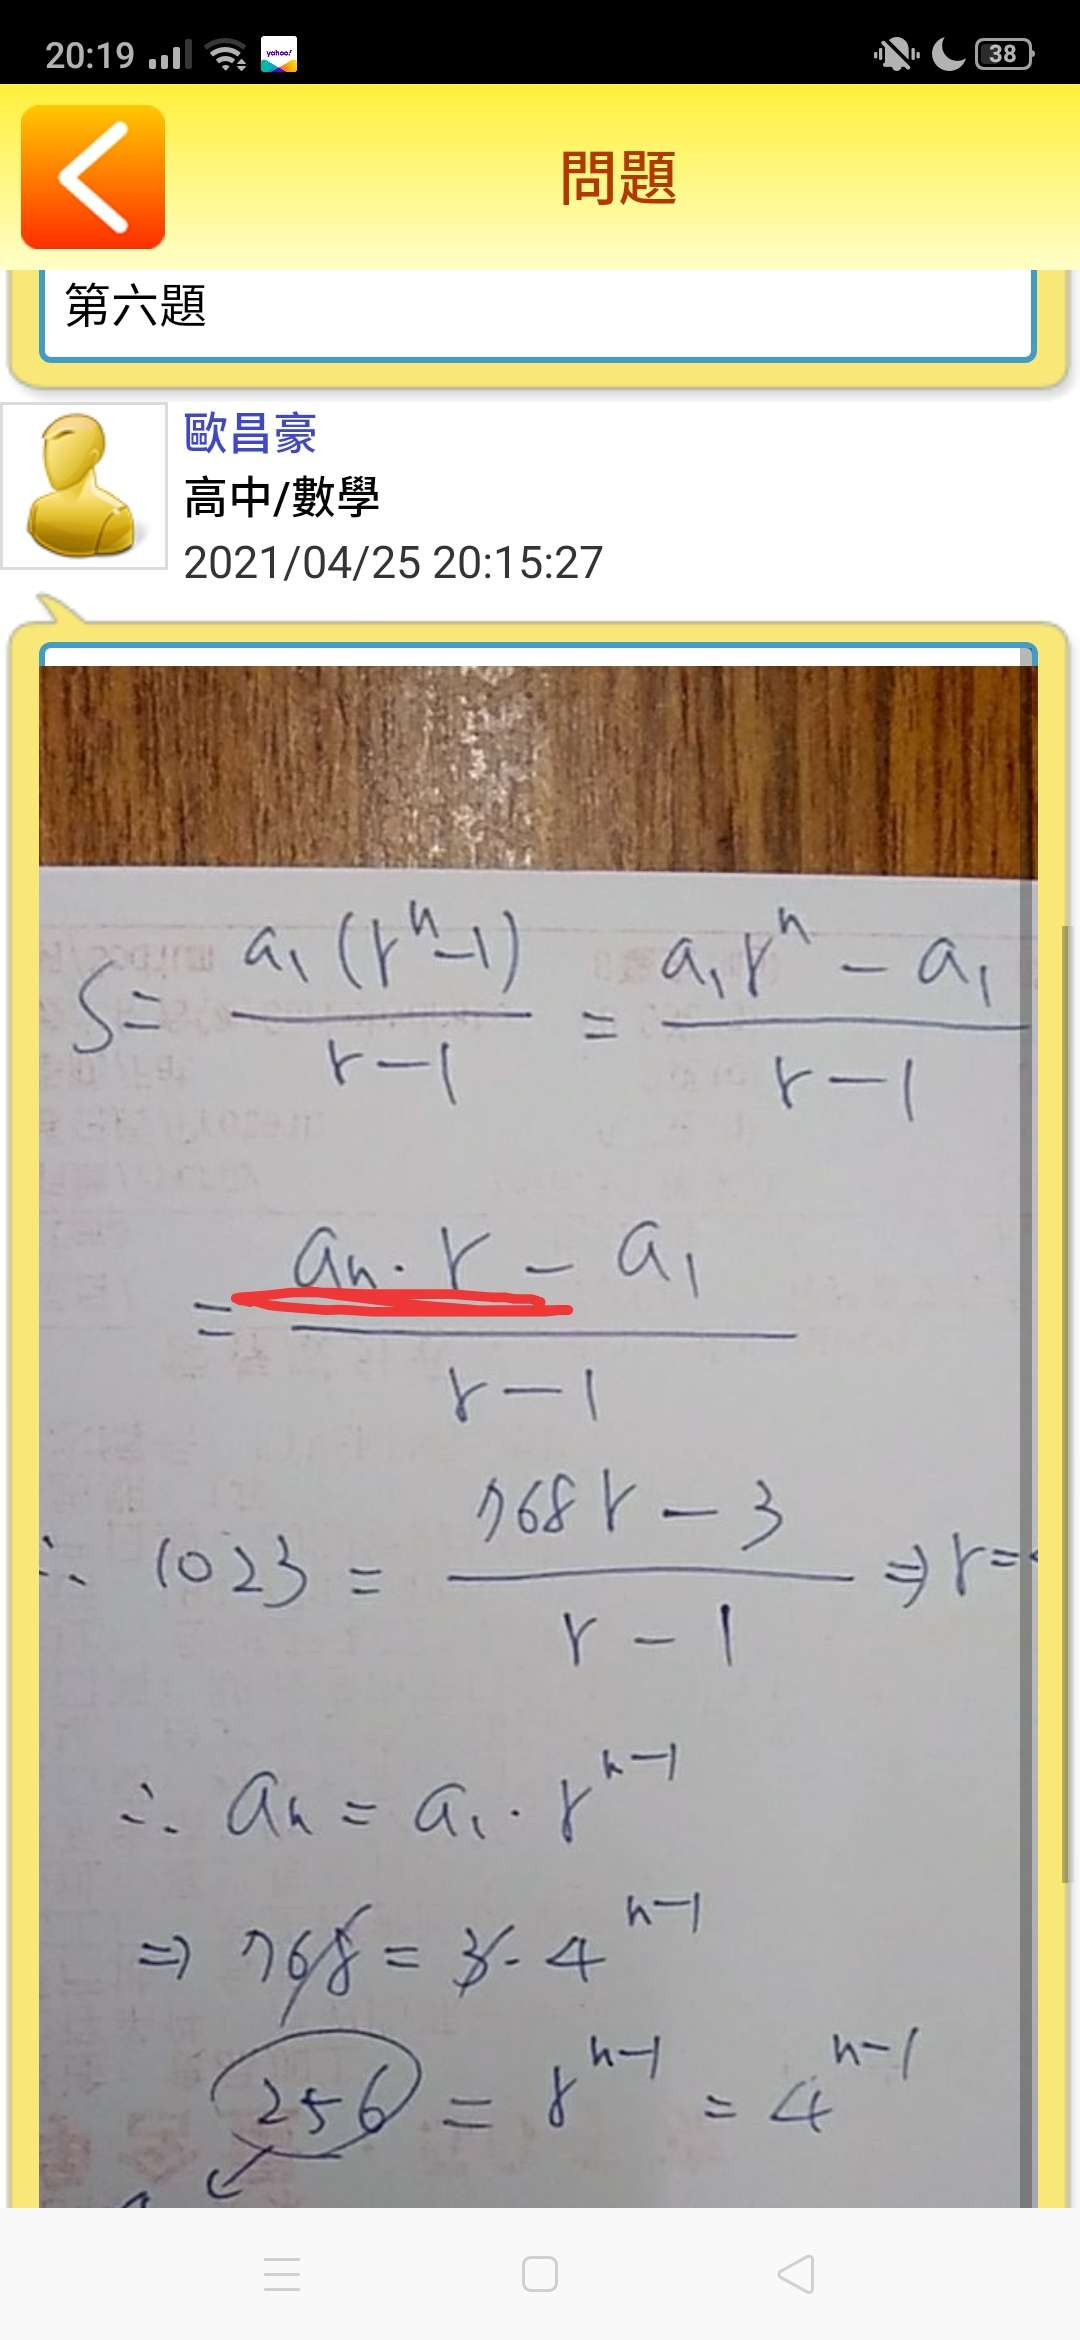 20:19
yahoo!
38
問題
第六題
歐昌豪
高中/數學
2021/04/25 20:15:27
S = a₁(rⁿ-1) / r-1 = a₁rⁿ - a₁ / r-1
= aₙ·r - a₁ / r-1
∴ 1023 = 768r - 3 / r-1 ⇒ r=
∴ aₙ = a₁·rⁿ⁻¹
⇒ 768 = 3·4ⁿ⁻¹
256 = rⁿ⁻¹ = 4ⁿ⁻¹